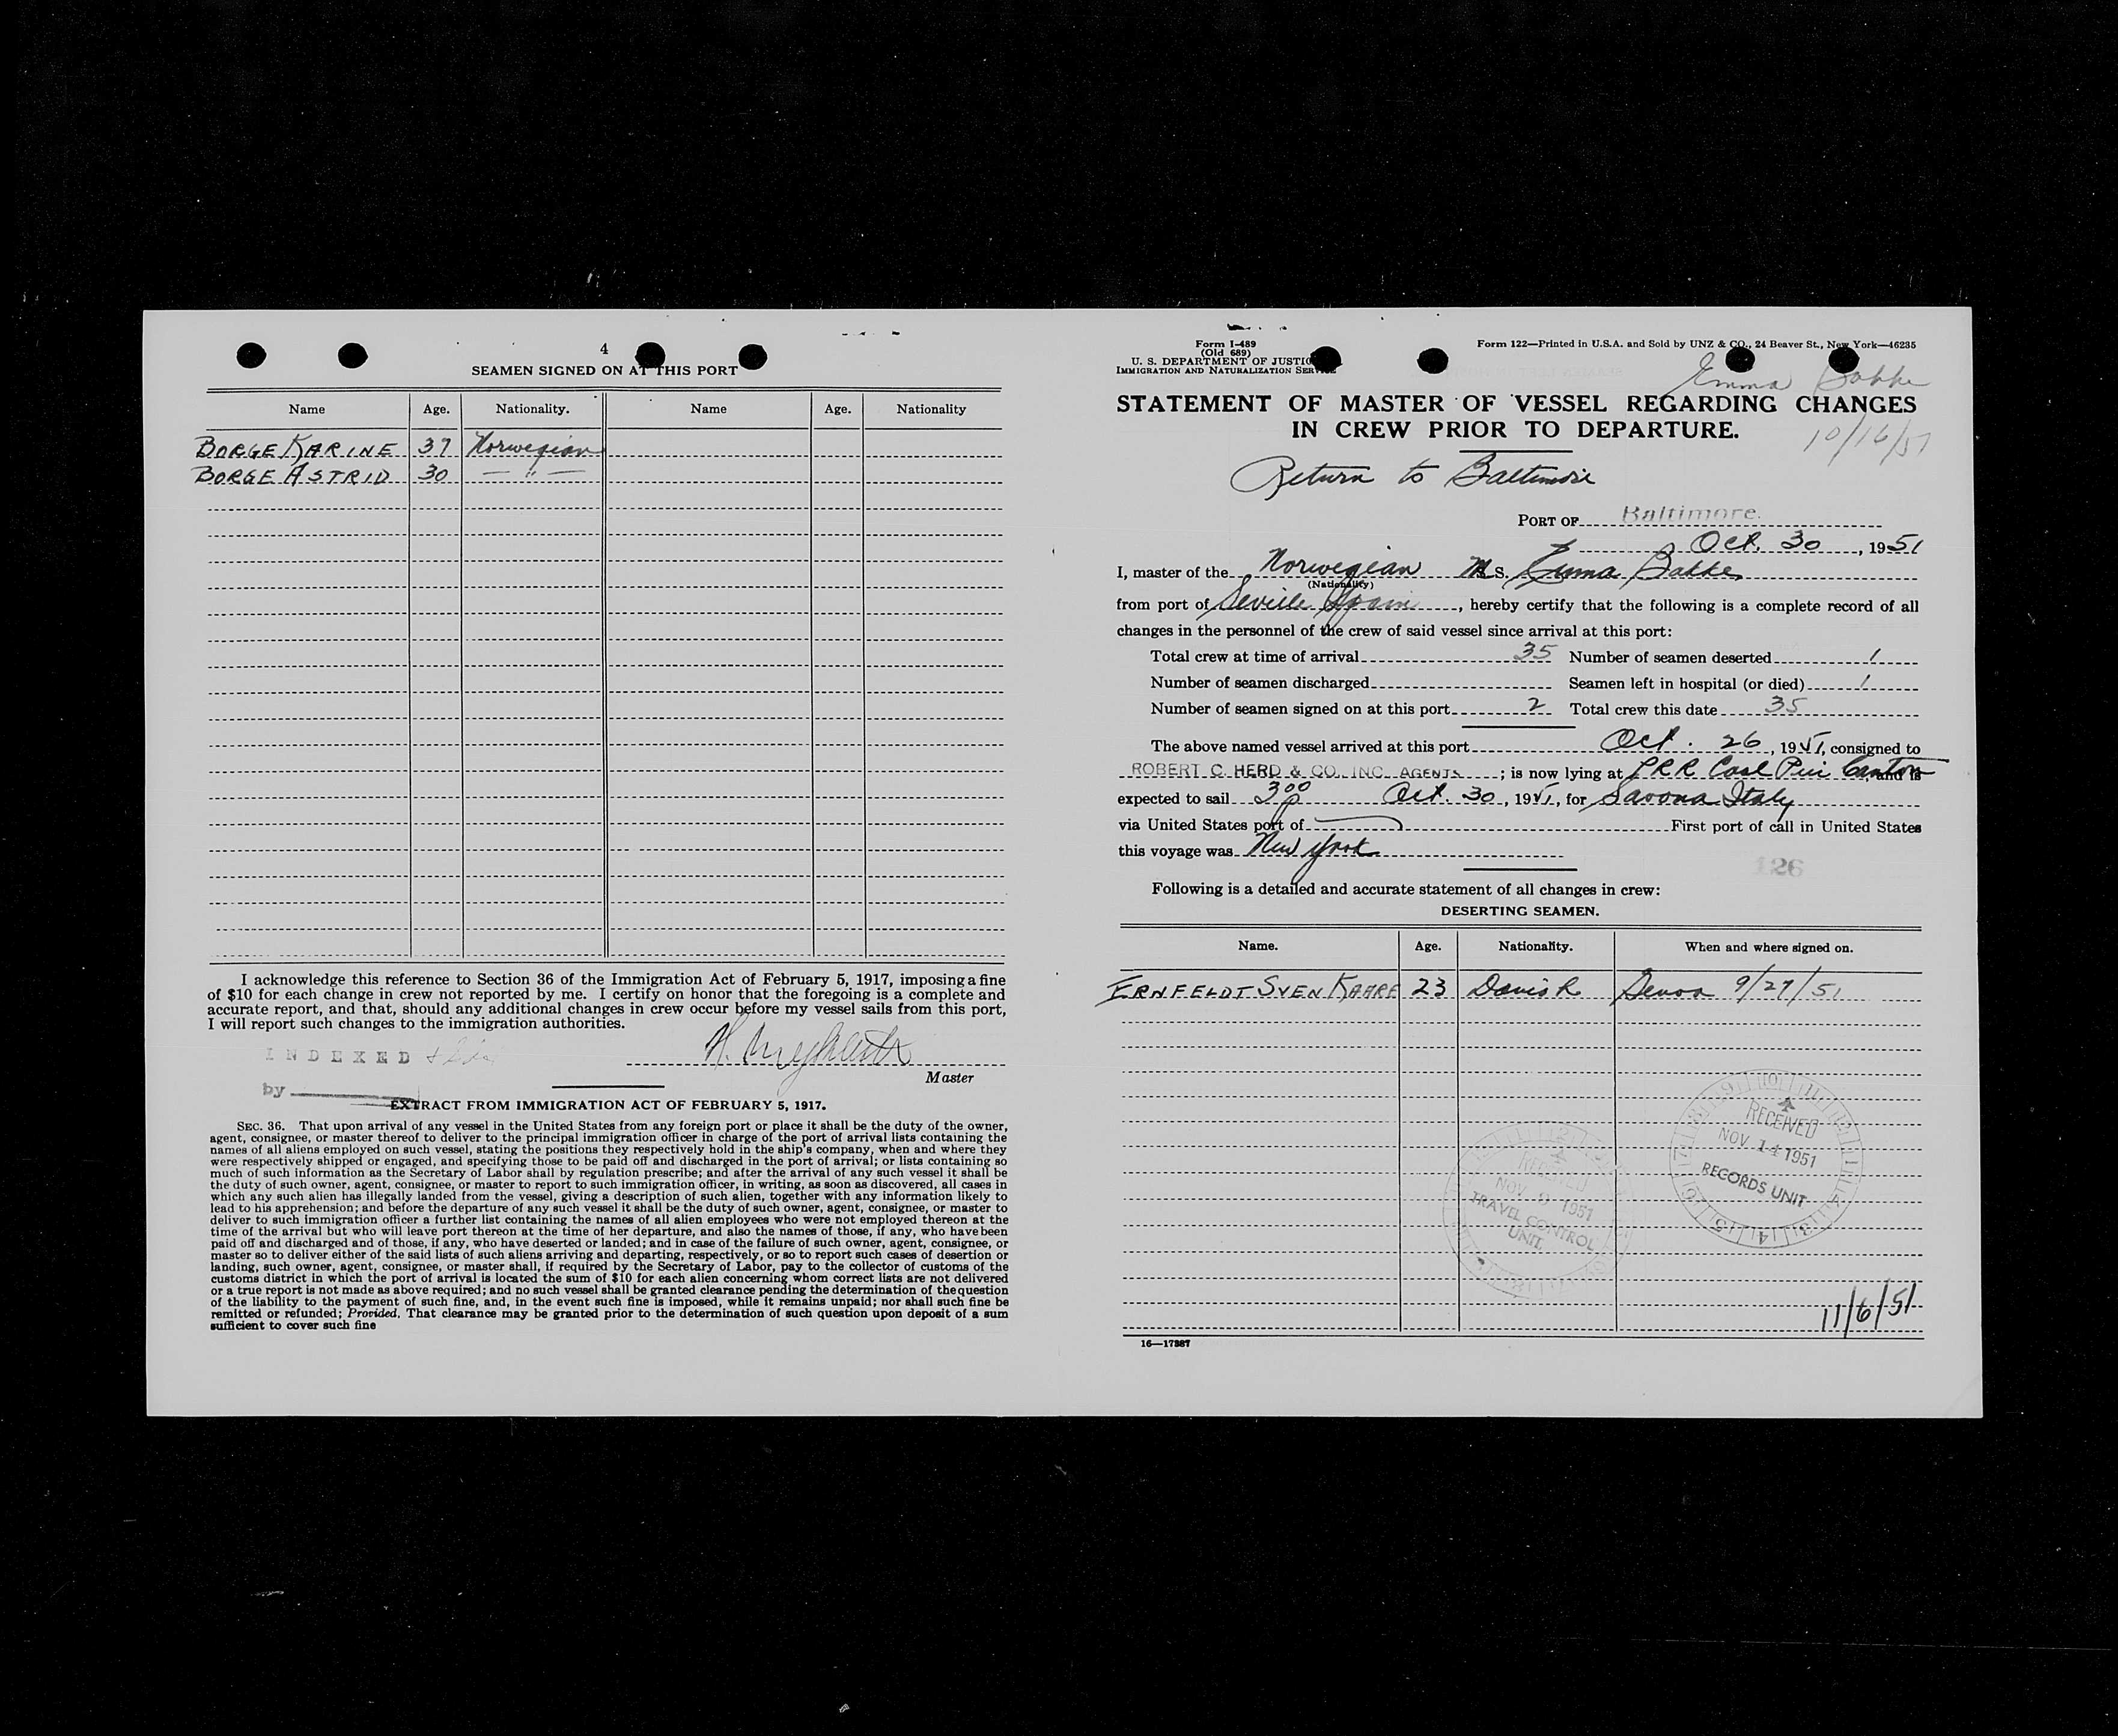 4
SEAMEN SIGNED ON AT THIS PORT
Name Age. Nationality. Name Age. Nationality
BORGE KARINE 37 Norwegian
BORGE ASTRID 30 — " —
I acknowledge this reference to Section 36 of the Immigration Act of February 5, 1917, imposing a fine
of $10 for each change in crew not reported by me. I certify on honor that the foregoing is a complete and
accurate report, and that, should any additional changes in crew occur before my vessel sails from this port,
I will report such changes to the immigration authorities.
INDEXED
Master
by
EXTRACT FROM IMMIGRATION ACT OF FEBRUARY 5, 1917.
SEC. 36. That upon arrival of any vessel in the United States from any foreign port or place it shall be the duty of the owner,
agent, consignee, or master thereof to deliver to the principal immigration officer in charge of the port of arrival lists containing the
names of all aliens employed on such vessel, stating the positions they respectively hold in the ship's company, when and where they
were respectively shipped or engaged, and specifying those to be paid off and discharged in the port of arrival; or lists containing so
much of such information as the Secretary of Labor shall by regulation prescribe; and after the arrival of any such vessel it shall be
the duty of such owner, agent, consignee, or master to report to such immigration officer, in writing, as soon as discovered, all cases in
which any such alien has illegally landed from the vessel, giving a description of such alien, together with any information likely to
lead to his apprehension; and before the departure of any such vessel it shall be the duty of such owner, agent, consignee, or master to
deliver to such immigration officer a further list containing the names of all alien employees who were not employed thereon at the
time of the arrival but who will leave port thereon at the time of her departure, and also the names of those, if any, who have been
paid off and discharged and of those, if any, who have deserted or landed; and in case of the failure of such owner, agent, consignee, or
master so to deliver either of the said lists of such aliens arriving and departing, respectively, or so to report such cases of desertion or
landing, such owner, agent, consignee, or master shall, if required by the Secretary of Labor, pay to the collector of customs of the
customs district in which the port of arrival is located the sum of $10 for each alien concerning whom correct lists are not delivered
or a true report is not made as above required; and no such vessel shall be granted clearance pending the determination of the question
of the liability to the payment of such fine, and, in the event such fine is imposed, while it remains unpaid; nor shall such fine be
remitted or refunded; Provided, That clearance may be granted prior to the determination of such question upon deposit of a sum
sufficient to cover such fine
Form I-489
(Old 689)
U. S. DEPARTMENT OF JUSTICE
IMMIGRATION AND NATURALIZATION SERVICE
Form 122—Printed in U.S.A. and Sold by UNZ & CO., 24 Beaver St., New York—46235
Emma Bakke
STATEMENT OF MASTER OF VESSEL REGARDING CHANGES
IN CREW PRIOR TO DEPARTURE.
10/16/51
Return to Baltimore
PORT OF Baltimore.
Oct. 30, 1951
I, master of the Norwegian M.S. Emma Bakke
(Nationality)
from port of Seville Spain, hereby certify that the following is a complete record of all
changes in the personnel of the crew of said vessel since arrival at this port:
Total crew at time of arrival 35 Number of seamen deserted 1
Number of seamen discharged Seamen left in hospital (or died) 1
Number of seamen signed on at this port 2 Total crew this date 35
The above named vessel arrived at this port Oct. 26, 1951, consigned to
ROBERT C. HERD & CO. INC. AGENTS; is now lying at PRR Coal Pier Canton, and is
expected to sail 3 00 p Oct. 30, 1951, for Savona Italy
via United States port of — First port of call in United States
this voyage was New York
126
Following is a detailed and accurate statement of all changes in crew:
DESERTING SEAMEN.
Name. Age. Nationality. When and where signed on.
ERNFELDT SVEN KAARE 23 Danish Genoa 9/27/51
RECEIVED
NOV 14 1951
RECORDS UNIT
RECEIVED
NOV 9 1951
TRAVEL CONTROL
UNIT.
11/6/51
16—17387